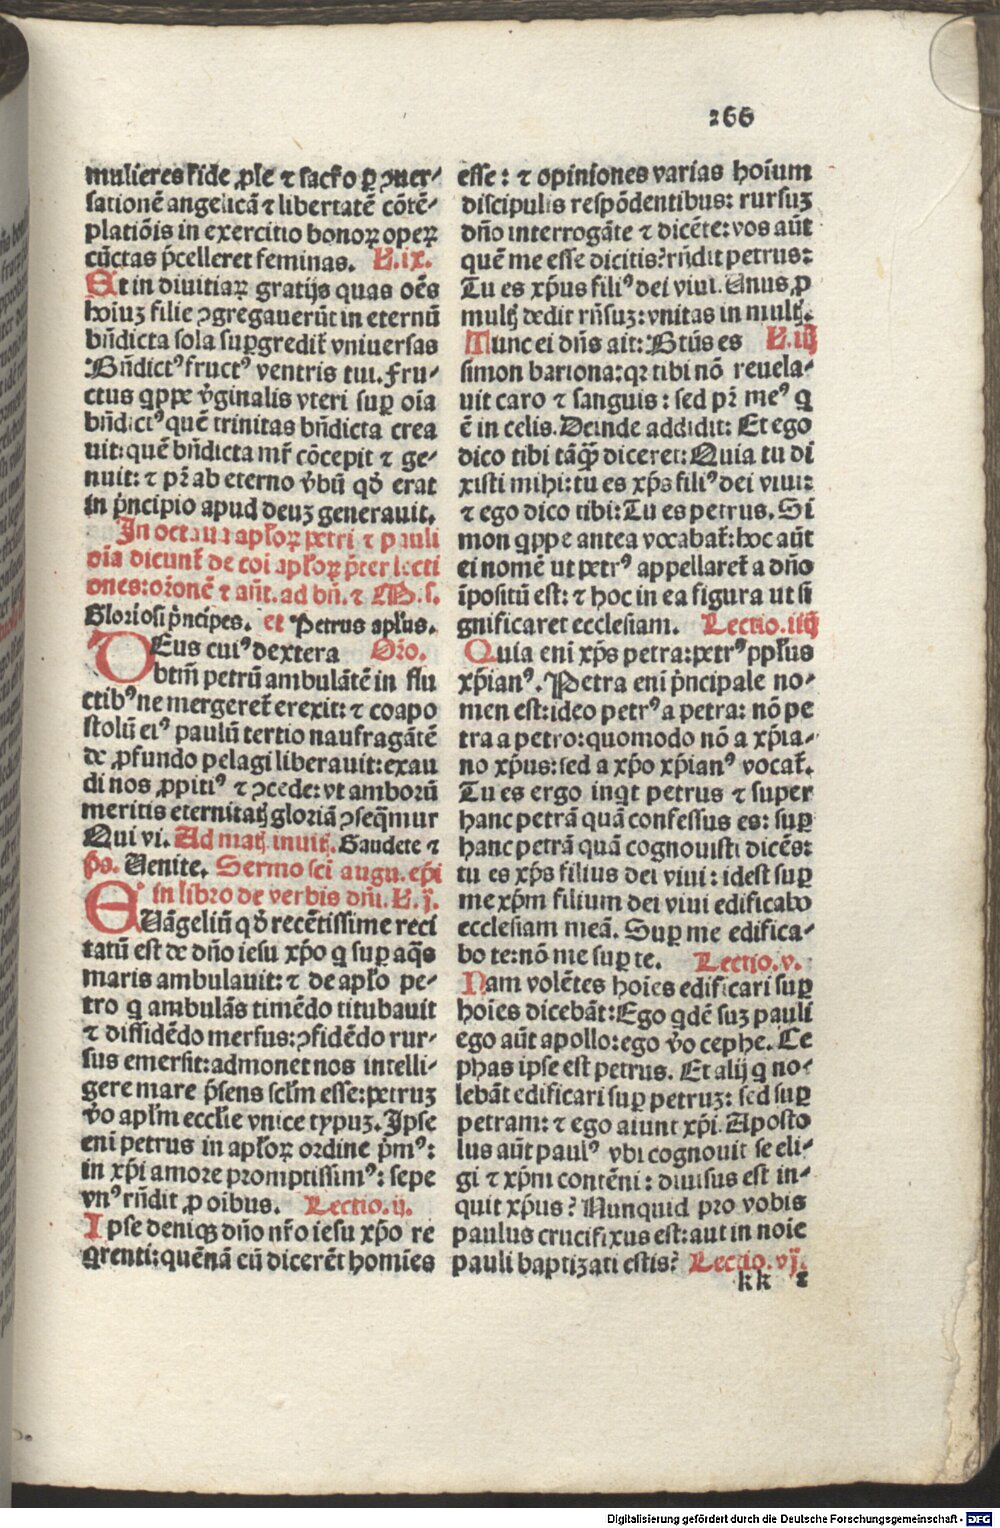 266
mulieres fide ꝓle ⁊ sacro ꝑ ꝯuer-
sationē angelicā ⁊ libertatē cōtē-
platiōis in exercitio bonoꝝ operꝝ
cūctas p̄celleret feminas. L.ix.
At in diuitiaꝝ gratijs quas oēs
hoiuꝫ filie ꝯgregauerūt in eternū
bn̄dicta sola suꝑgredit̄ vniuersas
Bn̄dictꝰ fructꝰ ventris tui. Fru-
ctus qppe v̄ginalis vteri suꝑ oīa
bn̄dictꝰ quē trinitas bn̄dicta crea
uit: quē bn̄dicta mr̄ cōcepit ⁊ ge-
nuit: ⁊ pr̄ ab eterno v̄bū qđ erat
in p̄ncipio apud deuꝫ generauit.
In octaua apƚoꝝ petri ⁊ pauli
oīa dicunt̄ de coi apƚoꝝ p̄ter lecti
ones: or̄onē ⁊ an̄t. ad bn̄. ⁊ M. s.
Gloriosi p̄ncipes. et Petrus apƚus.
DEus cuiꝰ dextera Or̄o.
btm̄ petrū ambulātē in flu
ctibꝰ ne mergeret̄ erexit: ⁊ coapo
stolū eiꝰ paulū tertio naufragātē
de ꝓfundo pelagi liberauit: exau
di nos ꝓpitiꝰ ⁊ ꝯcede: vt amborū
meritis eternitatꝭ gloriā ꝯseq̄mur
Qui vi. Ad matꝭ inuitꝭ. Gaudete ⁊
p̄s. Uenite. Sermo sci augu. ep̄i
in libro de verbis dn̄i. L. j.
EUāgeliū qđ recētissime reci
tatū est de dn̄o iesu xp̄o q suꝑ aq̄s
maris ambulauit: ⁊ de apƚo pe-
tro q ambulās timēdo titubauit
⁊ diffidēdo mersus: ꝯfidēdo rur-
sus emersit: admonet nos intelli-
gere mare p̄sens scƚm esse: petruꝫ
v̄o apƚm eccƚie vnice typuꝫ. Ipse
eni petrus in apƚoꝝ ordine p̄mꝰ:
in xp̄i amore promptissimꝰ: sepe
vnꝰ rn̄dit ꝓ oibus. Lectio.ij.
Ipse deniqꝫ dn̄o nr̄o iesu xp̄o re
qrenti: quēnā eū dicerēt homies
esse: ⁊ opiniones varias hoīum
discipulis respōdentibus: rursuꝫ
dn̄o interrogāte ⁊ dicēte: vos aūt
quē me esse dicitis? rn̄dit petrus:
Tu es xp̄us filiꝰ dei viui. Unus ꝓ
multꝭ dedit rn̄suꝫ: vnitas in multꝭ.
Tunc ei dn̄s ait: Btūs es L.iij
simon bariona: qꝛ tibi nō reuela-
uit caro ⁊ sanguis: sed pr̄ meꝰ q
ē in celis. Deinde addidit: Et ego
dico tibi tāꝙ diceret: Quia tu di
xisti mihi: tu es xp̄s filiꝰ dei viui:
⁊ ego dico tibi: Tu es petrus. Si
mon qppe antea vocabat̄: hoc aūt
ei nomē ut petrꝰ appellaret̄ a dn̄o
īpositū est: ⁊ hoc in ea figura ut si
gnificaret ecclesiam. Lectio.iiij
Quia eni xp̄s petra: petrꝰ ppƚus
xp̄ianꝰ. Petra eni p̄ncipale no-
men est: ideo petrꝰ a petra: nō pe
tra a petro: quomodo nō a xp̄ia-
no xp̄us: sed a xp̄o xp̄ianꝰ vocat̄.
Tu es ergo inqt petrus ⁊ super
hanc petrā quā confessus es: suꝑ
hanc petrā quā cognouisti dicēs:
tu es xp̄s filius dei viui: idest suꝑ
me xp̄m filium dei viui edificabo
ecclesiam meā. Suꝑ me edifica-
bo te: nō me suꝑ te. Lectio.v.
Nam volētes hoies edificari suꝑ
hoīes dicebāt: Ego qdē suꝫ pauli
ego aūt apollo: ego v̄o cephe. Ce
phas ipse est petrus. Et alij q no-
lebāt edificari suꝑ petruꝫ: sed suꝑ
petram: ⁊ ego aiunt xp̄i. Aposto
lus aūt paulꝰ vbi cognouit se eli-
gi ⁊ xp̄m contēni: diuisus est in-
quit xp̄us? Nunquid pro vobis
paulus crucifixus est: aut in noie
pauli baptizati estis? Lectio.vj.
kk 2
Digitalisierung gefördert durch die Deutsche Forschungsgemeinschaft - DFG